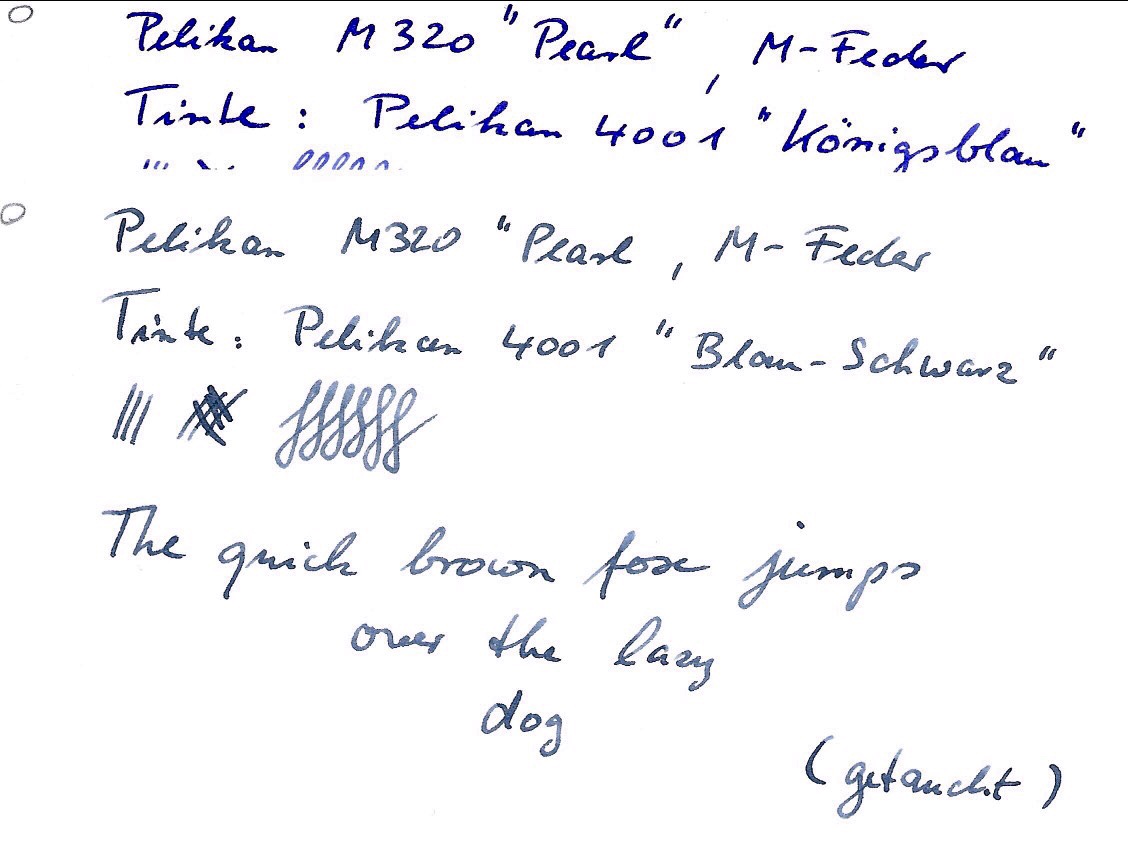 Pelikan M320 "Pearl", M-Feder
Tinte: Pelikan 4001 "Königsblau"
Pelikan M320 "Pearl, M-Feder
Tinte: Pelikan 4001 "Blau-Schwarz"
The quick brown fox jumps
over the lazy
dog
(getaucht)